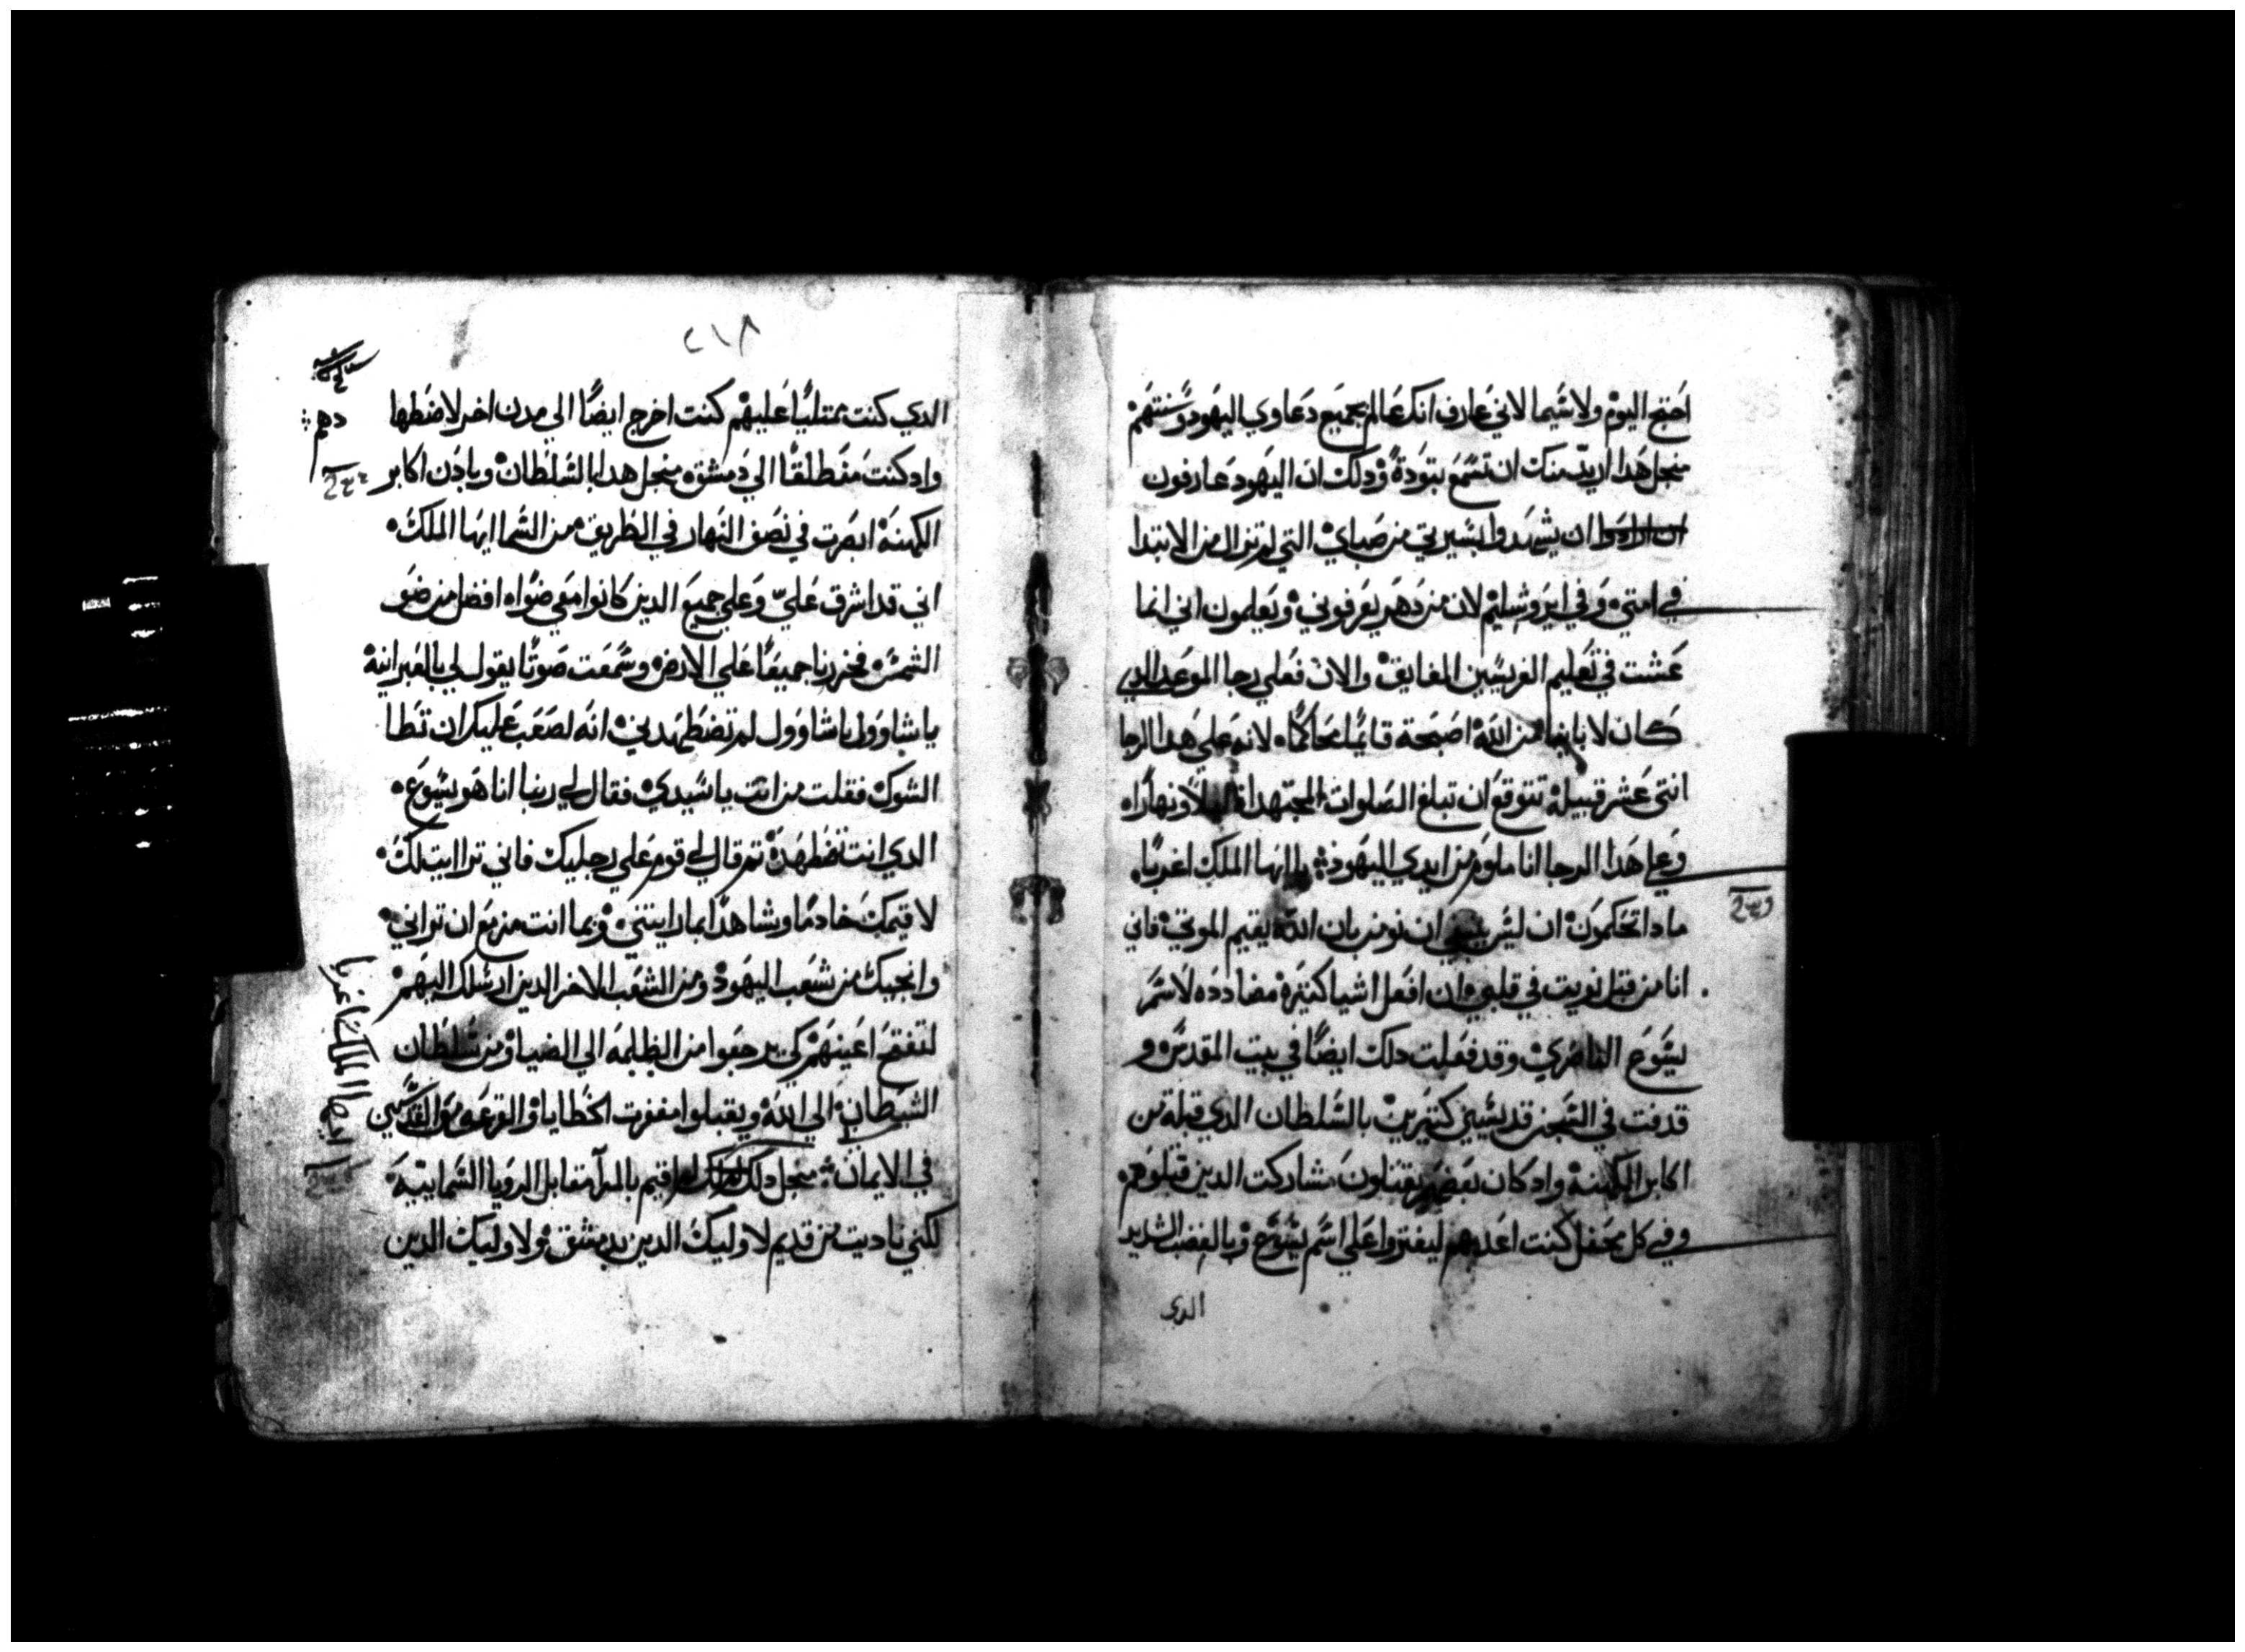 احتج اليوم ولا سيما لاني عارف انك عالم بجميع دعاوي اليهود وسنتهم
منجل هدا اريد منك ان تسمع بتودة ودلك ان اليهود عارفون
ان ارادوا ان يشهدوا بسيرتي من صباي التي لم تزال من الابتدا
في امتي وفي ايروشليم لان من دهر يعرفوني ويعلمون اني انما
عشت في تعليم الفريسين الفايق والان فعلي رجا الموعد الدي
كان لاباينا من الله اصبحة قايمًا محاكمًا لانه علي هدا الرجا
اتني عشر قبيلة تتوقع ان تبلغ الصلوات المجتهداة ليلاً ونهارًا
وعلي هدا الرجا انا ملوم من ايدي اليهود يا ايها الملك اغربا
مادا تحكمون ان ليس ينبغي ان نومن بان الله يقيم الموتي فاني
انا من قبل نويت في قلبي ان افعل اشيا كتيرة مضادده لاسم
يسوع الناصري وقد فعلت دلك ايضًا في بيت المقدس و
قدفت في السجن قديسين كتيرين بالسلطان الدي قبلة من
اكابر الكهنة واد كان بعضهم يقتلون شاركت الدين قتلوهم
وفي كل محفل كنت اعدبهم ليفتروا علي اسم يسوع وبالغضب الشديد
الدي
٢١٨
الدي كنت ممتليًا عليهم كنت اخرج ايضًا الي مدن اخر لاضطها
دهم
واد كنت منطلقًا الي دمشق منجل هدا بالسلطان وبادن اكابر
الكهنة ابصرت في نصف النهار في الطريق من السما ايها الملك
اني قد اشرق عليّ وعلي جميع الدين كانوا معي ضوًا افضل من ضو
الشمس فخررنا جميعًا علي الارض وسمعت صوتًا يقول لي بالعبرانية
يا شاوول يا شاوول لم تضطهدني انه لصعب عليك ان تطا
الشوك فقلت من انت يا سيدي فقال لي ربنا انا هو يسوع
الدي انت تضطهدة تم قال لي قوم علي رجليك فاني ترااييت لك
لاقيمك خادمًا وشاهدًا بما رايتني وبما انت مزمع ان تراني
وانجيك من شعب اليهود ومن الشعب الاخر الدين ارسلك اليهم
لتفتح اعينهم كي يرجعوا من الظلمه الي الضيا ومن سلطان
الشيطان الي الله ويقبلوا مغفرت الخطايا والقرعه مع القديسين
في الايمان منجل دلك ايها الملك اغربا لم اقيم بالمرا مقابل الرويا السماييّة
لكني ناديت من قديم لاوليك الدين بدمشق ولاوليك الدين